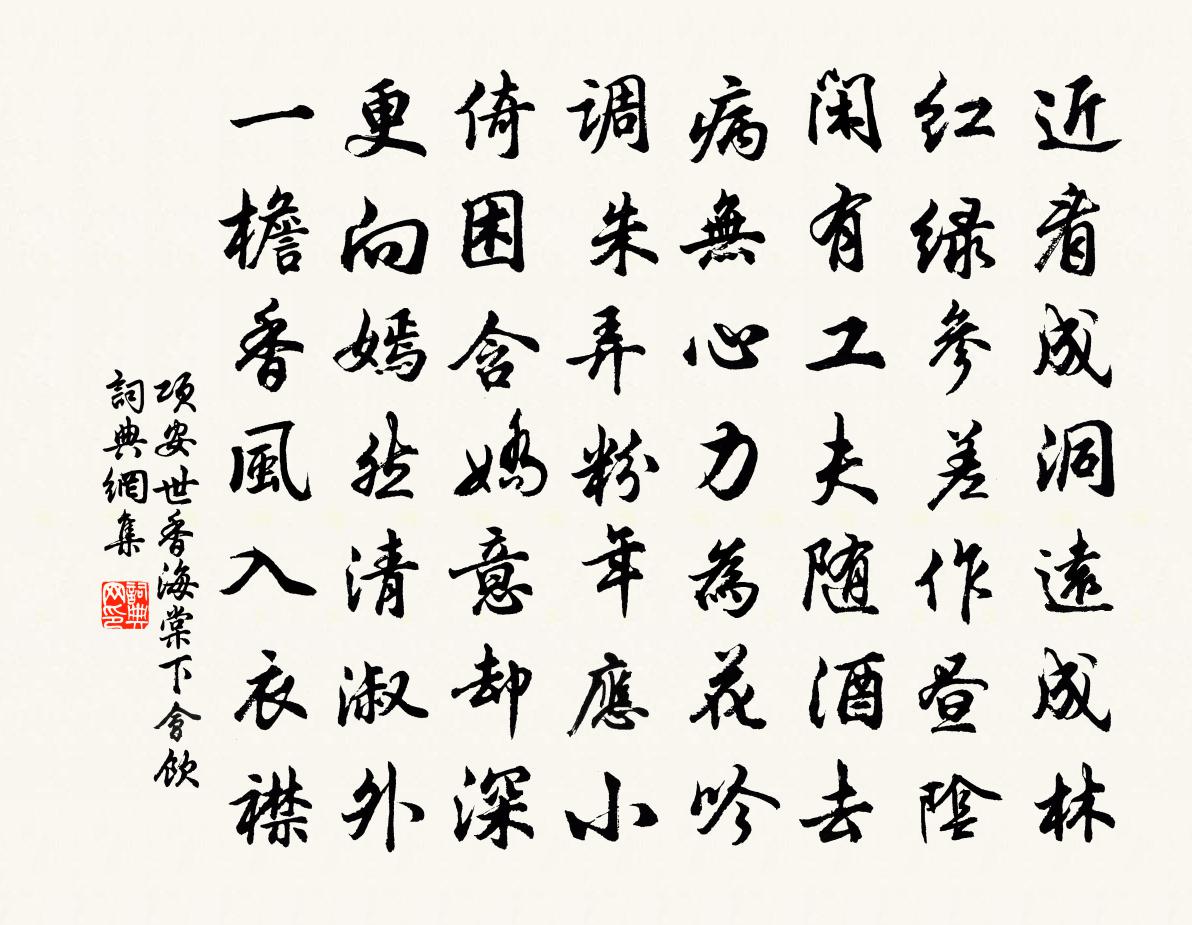 近看成洞遠成林
红绿參差作昼陰
闲有工夫随酒去
病無心力為花吟
调朱弄粉年應小
倚困含嬌意却深
更向嫣然清淑外
一檐香風入衣襟
项安世香海棠下會飲
詞典網集
詞典网印